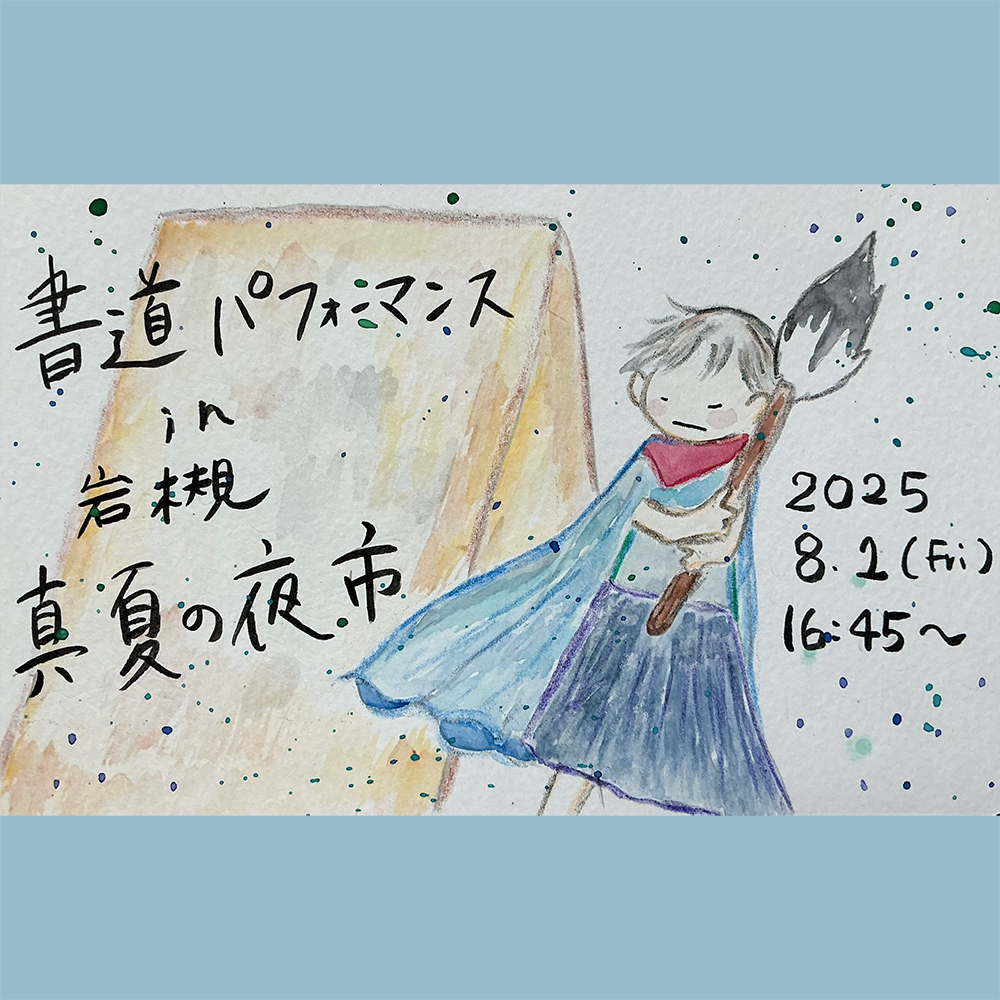 書道パフォーマンス
in
岩槻
真夏の夜市
2025
8.1(Fri)
16:45~